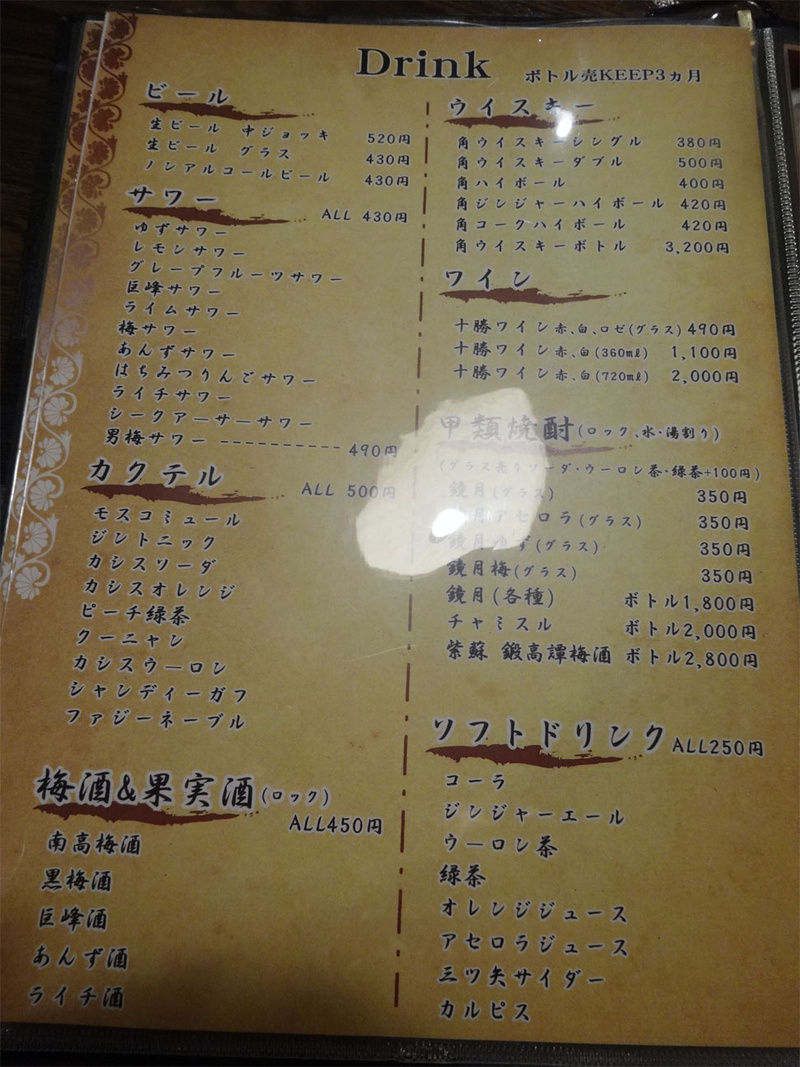 Drink ボトル売KEEP3ヵ月
ビール
生ビール 中ジョッキ 520円
生ビール グラス 430円
ノンアルコールビール 430円
サワー ALL 430円
ゆずサワー
レモンサワー
グレープフルーツサワー
巨峰サワー
ライムサワー
梅サワー
あんずサワー
はちみつりんごサワー
ライチサワー
シークアーサーサワー
男梅サワー ----------- 490円
カクテル ALL 500円
モスコミュール
ジントニック
カシスソーダ
カシスオレンジ
ピーチ緑茶
クーニャン
カシスウーロン
シャンディーガフ
ファジーネーブル
梅酒&果実酒(ロック) ALL450円
南高梅酒
黒梅酒
巨峰酒
あんず酒
ライチ酒
ウイスキー
角ウイスキーシングル 380円
角ウイスキーダブル 500円
角ハイボール 400円
角ジンジャーハイボール 420円
角コークハイボール 420円
角ウイスキーボトル 3,200円
ワイン
十勝ワイン赤、白、ロゼ(グラス) 490円
十勝ワイン赤、白(360ml) 1,100円
十勝ワイン赤、白(720ml) 2,000円
甲類焼酎(ロック、水・湯割り)
(グラス売りソーダ・ウーロン茶・緑茶+100円)
鏡月(グラス) 350円
鏡月アセロラ(グラス) 350円
鏡月ゆず(グラス) 350円
鏡月梅(グラス) 350円
鏡月(各種) ボトル1,800円
チャミスル ボトル2,000円
紫蘇 鍛高譚梅酒 ボトル2,800円
ソフトドリンク ALL250円
コーラ
ジンジャーエール
ウーロン茶
緑茶
オレンジジュース
アセロラジュース
三ツ矢サイダー
カルピス